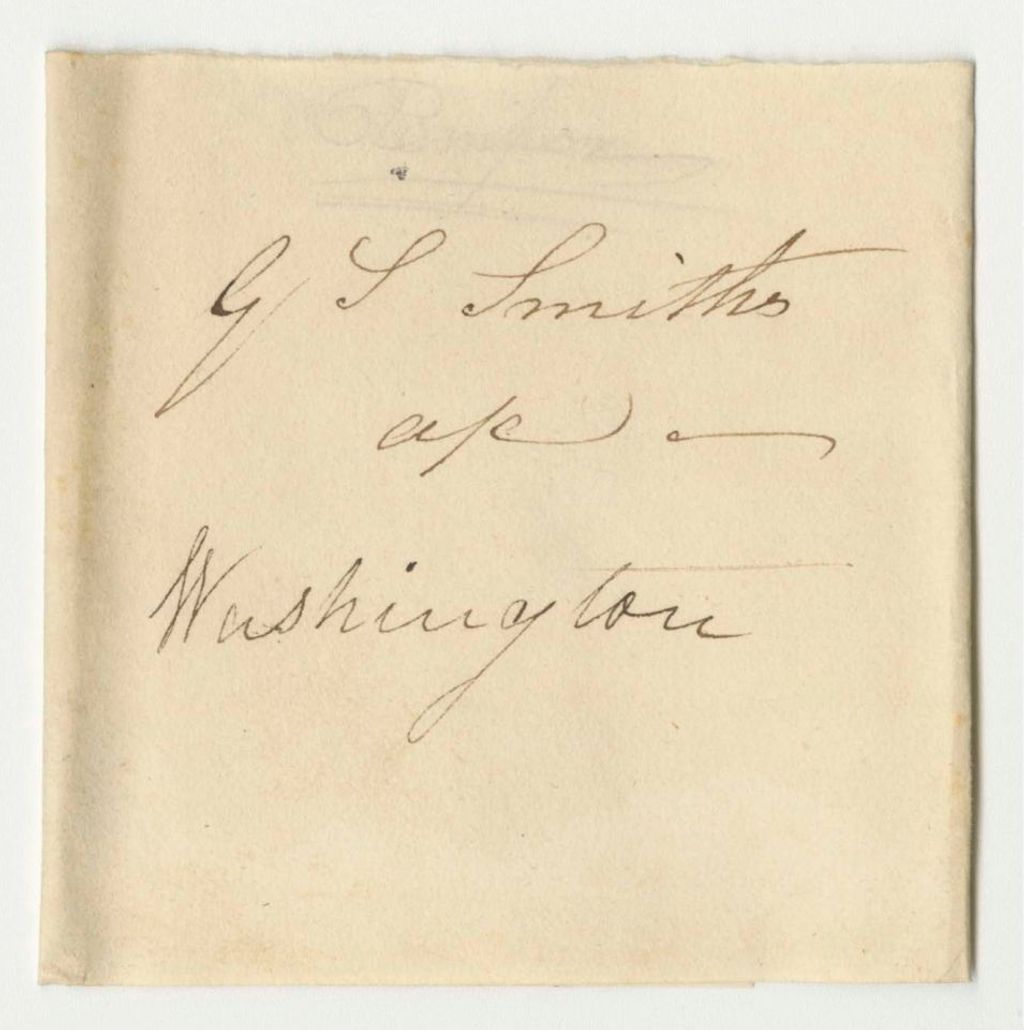 G S Smiths
a/c —
Washington